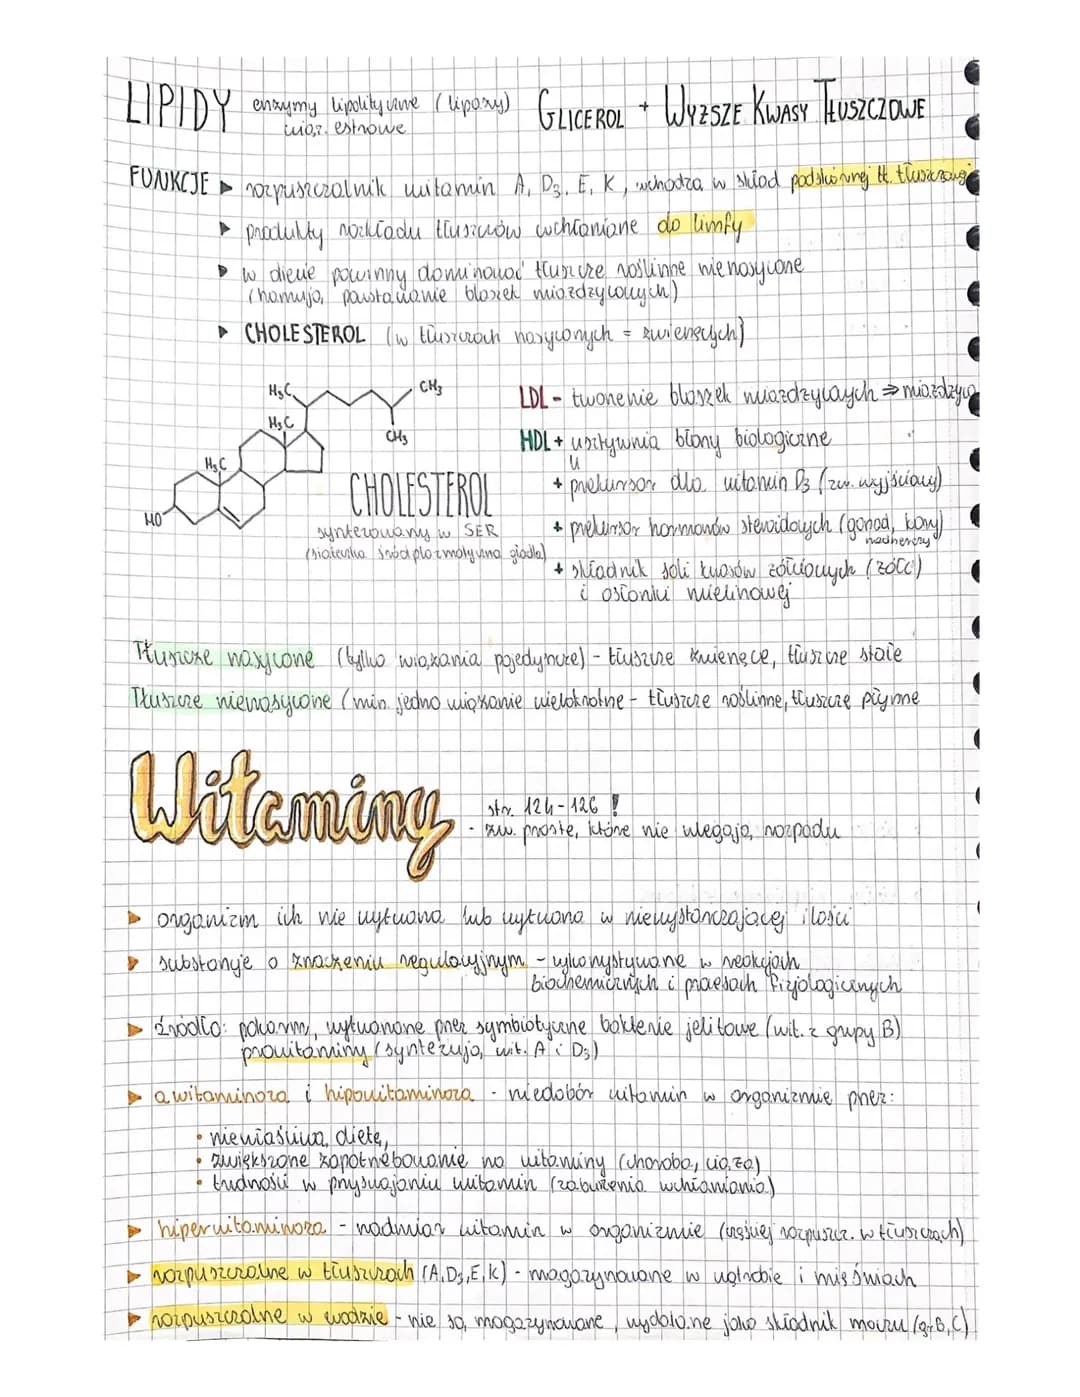 LIPIDY enzymy lipolityczne (lipazy) GLICEROL + WYŻSZE KWASY TŁUSZCZOWE
wiąz. estrowe
FUNKCJE ▶ rozpuszczalnik witamin A, D3, E, K, wchodzą w skład podskórnej tk. tłuszczowej
▶ produkty rozkładu tłuszczów wchłaniane do limfy
▶ w diecie powinny dominować tłuszcze roślinne nienasycone
(hamują powstawanie blaszek miażdżycowych)
▶ CHOLESTEROL (w tłuszczach nasyconych = zwierzęcych)
H3C CH3
H3C
CH3
H3C
HO
CHOLESTEROL
syntezowany w SER
(siateczka śródplazmatyczna gładka)
LDL - tworzenie blaszek miażdżycowych ⇒ miażdżyca
HDL + usztywnia błony biologiczne
+ prekursor dla witamin D3 (zw. wyjściowy)
+ prekursor hormonów steroidowych (gonad, kory nadnerczy)
+ składnik soli kwasów żółciowych (żółć)
i osłonki mielinowej
Tłuszcze nasycone (tylko wiązania pojedyncze) - tłuszcze zwierzęce, tłuszcze stałe
Tłuszcze nienasycone (min. jedno wiązanie wielokrotne - tłuszcze roślinne, tłuszcze płynne
Witaminy
str. 124-126 !
- zw. proste, które nie ulegają rozpadu
▶ organizm ich nie wytwarza lub wytwarza w niewystarczającej ilości
▶ substancje o znaczeniu regulacyjnym - wykorzystywane w reakcjach
biochemicznych i procesach fizjologicznych
▶ źródło: pokarm, wytwarzane przez symbiotyczne bakterie jelitowe (wit. z grupy B)
prowitaminy (syntezują wit. A i D3)
▶ awitaminoza i hipowitaminoza - niedobór witamin w organizmie przez:
• niewłaściwą dietę,
• zwiększone zapotrzebowanie na witaminy (choroba, ciąża)
• trudności w przyswajaniu witamin (zaburzenia wchłaniania)
▶ hiperwitaminoza - nadmiar witamin w organizmie (częściej rozpuszcz. w tłuszczach)
▶ rozpuszczalne w tłuszczach (A, D3, E, K) - magazynowane w wątrobie i mięśniach
▶ rozpuszczalne w wodzie - nie są magazynowane, wydalane jako składnik moczu (gr B, C)